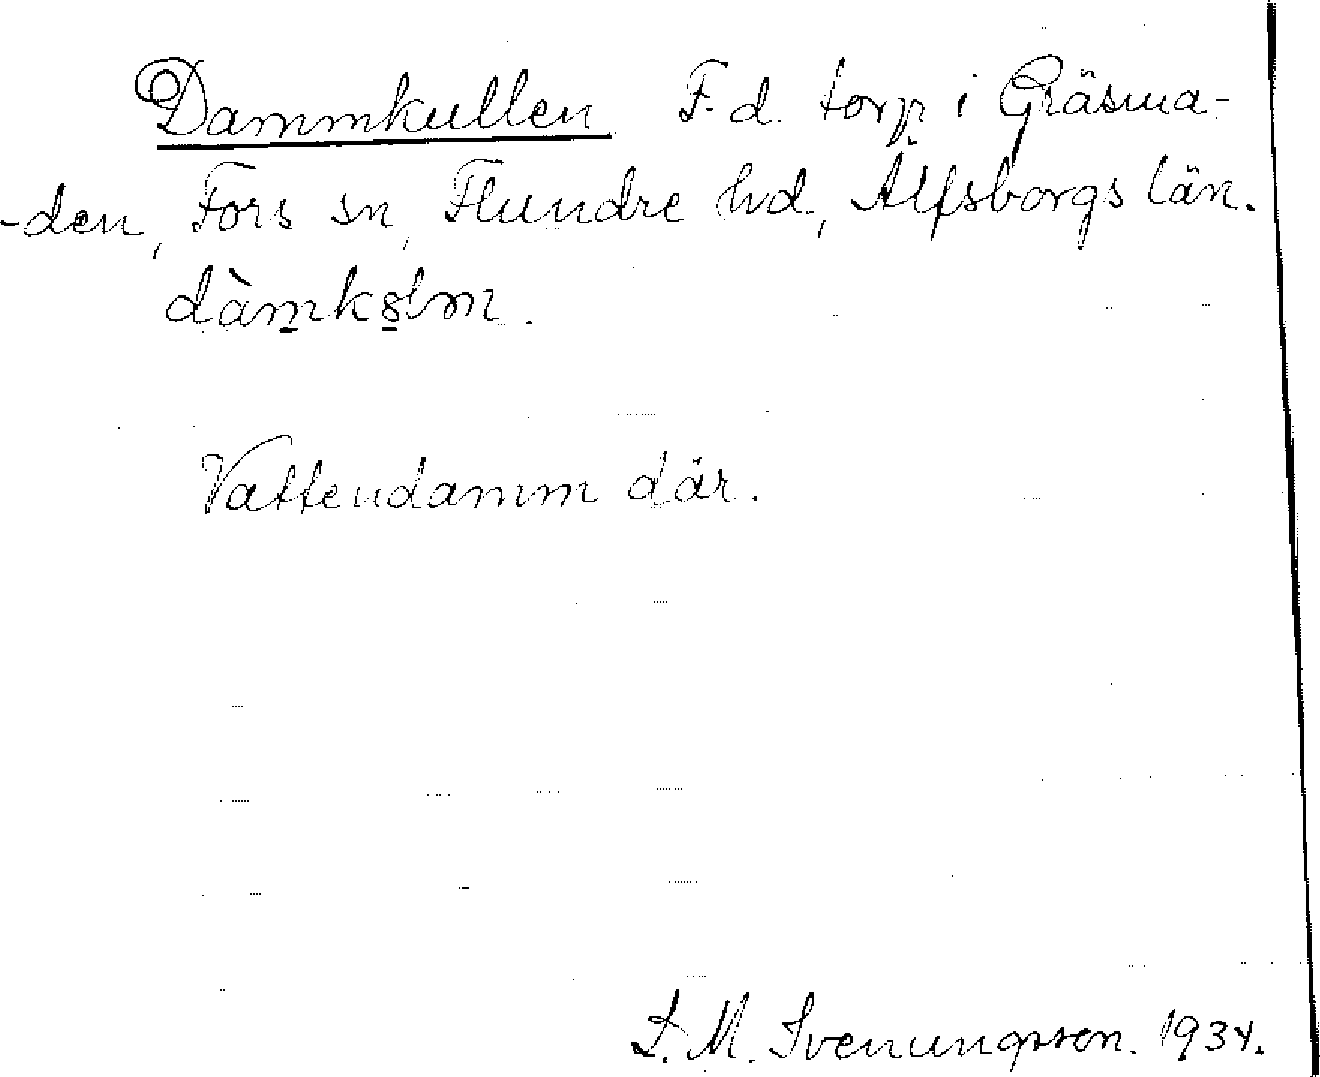 Dammkullen F.d. torp i Gräsma-
-den, Fors sn, Flundre hd., Älfsborgs län.
Vattendamm där.
L. M. Svenungsson. 1934.